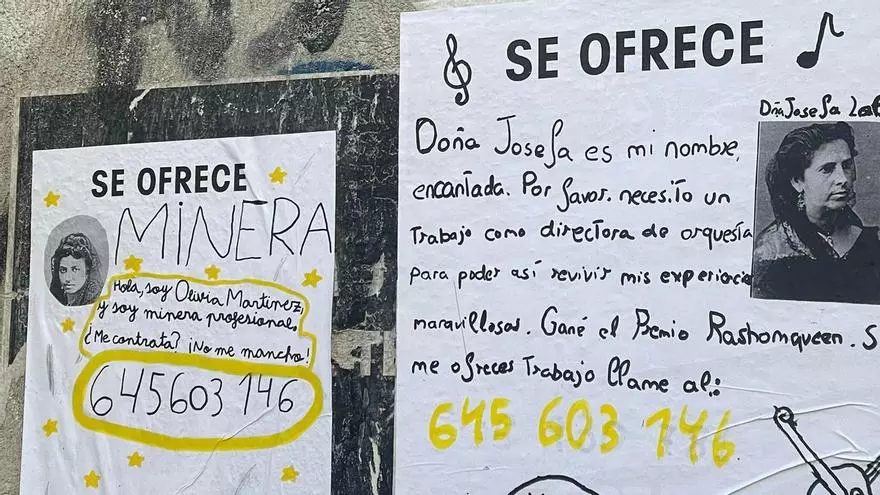 SE OFRECE
MINERA
Hola, soy Olivia Martinez,
y soy minera profesional,
¿Me contrata? ¡No me mancho!
645603 146
SE OFRECE
Doña Josefa
Doña Josefa es mi nombre,
encantada. Por favor. necesito un
Trabajo como directora de orquesta
para poder así revivir mis experiencia
maravillosas. Gané el Premio Rashomqueen. S
me ofreces Trabajo llame al:
645 603 146